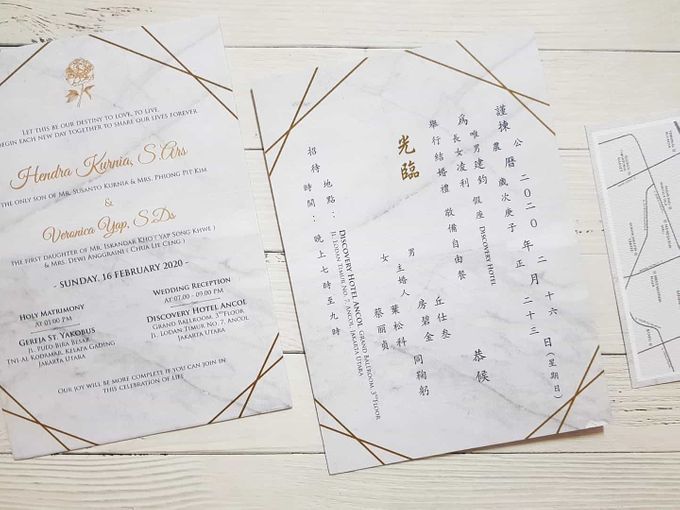 LET THIS BE OUR DESTINY TO LOVE, TO LIVE
BEGIN EACH NEW DAY TOGETHER TO SHARE OUR LIVES FOREVER
Hendra Kurnia, S.Ars
THE ONLY SON OF MR. SUSANTO KURNIA & MRS. PHIONG PIT KIM
&
Veronica Yap, S.Ds
THE FIRST DAUGHTER OF MR. ISKANDAR KHO ( YAP SONG KHWE )
& MRS. DEWI ANGGRAINI ( CHUA LIE CENG )
- SUNDAY, 16 FEBRUARY 2020 -
HOLY MATRIMONY
AT 01:00 PM
GEREJA ST. YAKOBUS
JL. PUJO BIRA BESAR
TNI-AL KODAMAR, KELAPA GADING
JAKARTA UTARA
WEDDING RECEPTION
AT 07.00 - 09.00 PM
DISCOVERY HOTEL ANCOL
GRAND BALLROOM, 3RD FLOOR
JL. LODAN TIMUR NO. 7, ANCOL
JAKARTA UTARA
OUR JOY WILL BE MORE COMPLETE IF YOU CAN JOIN IN
THIS CELEBRATION OF LIFE
謹揀
公曆二0二0年二月十六日(星期日)
農歲次庚子正二十三
為唯男建鈞
長女凌利
假座 DISCOVERY HOTEL
舉行結婚禮 敬備自由餐
恭候
光臨
男
女
主婚人
丘仕叁
房碧金
葉松科
蔡麗貞
同鞠躬
地點:
DISCOVERY HOTEL ANCOL, GRAND BALLROOM, 3RD FLOOR
JL. LODAN TIMUR NO. 7, ANCOL, JAKARTA UTARA
招待時間:晚上七時至九時